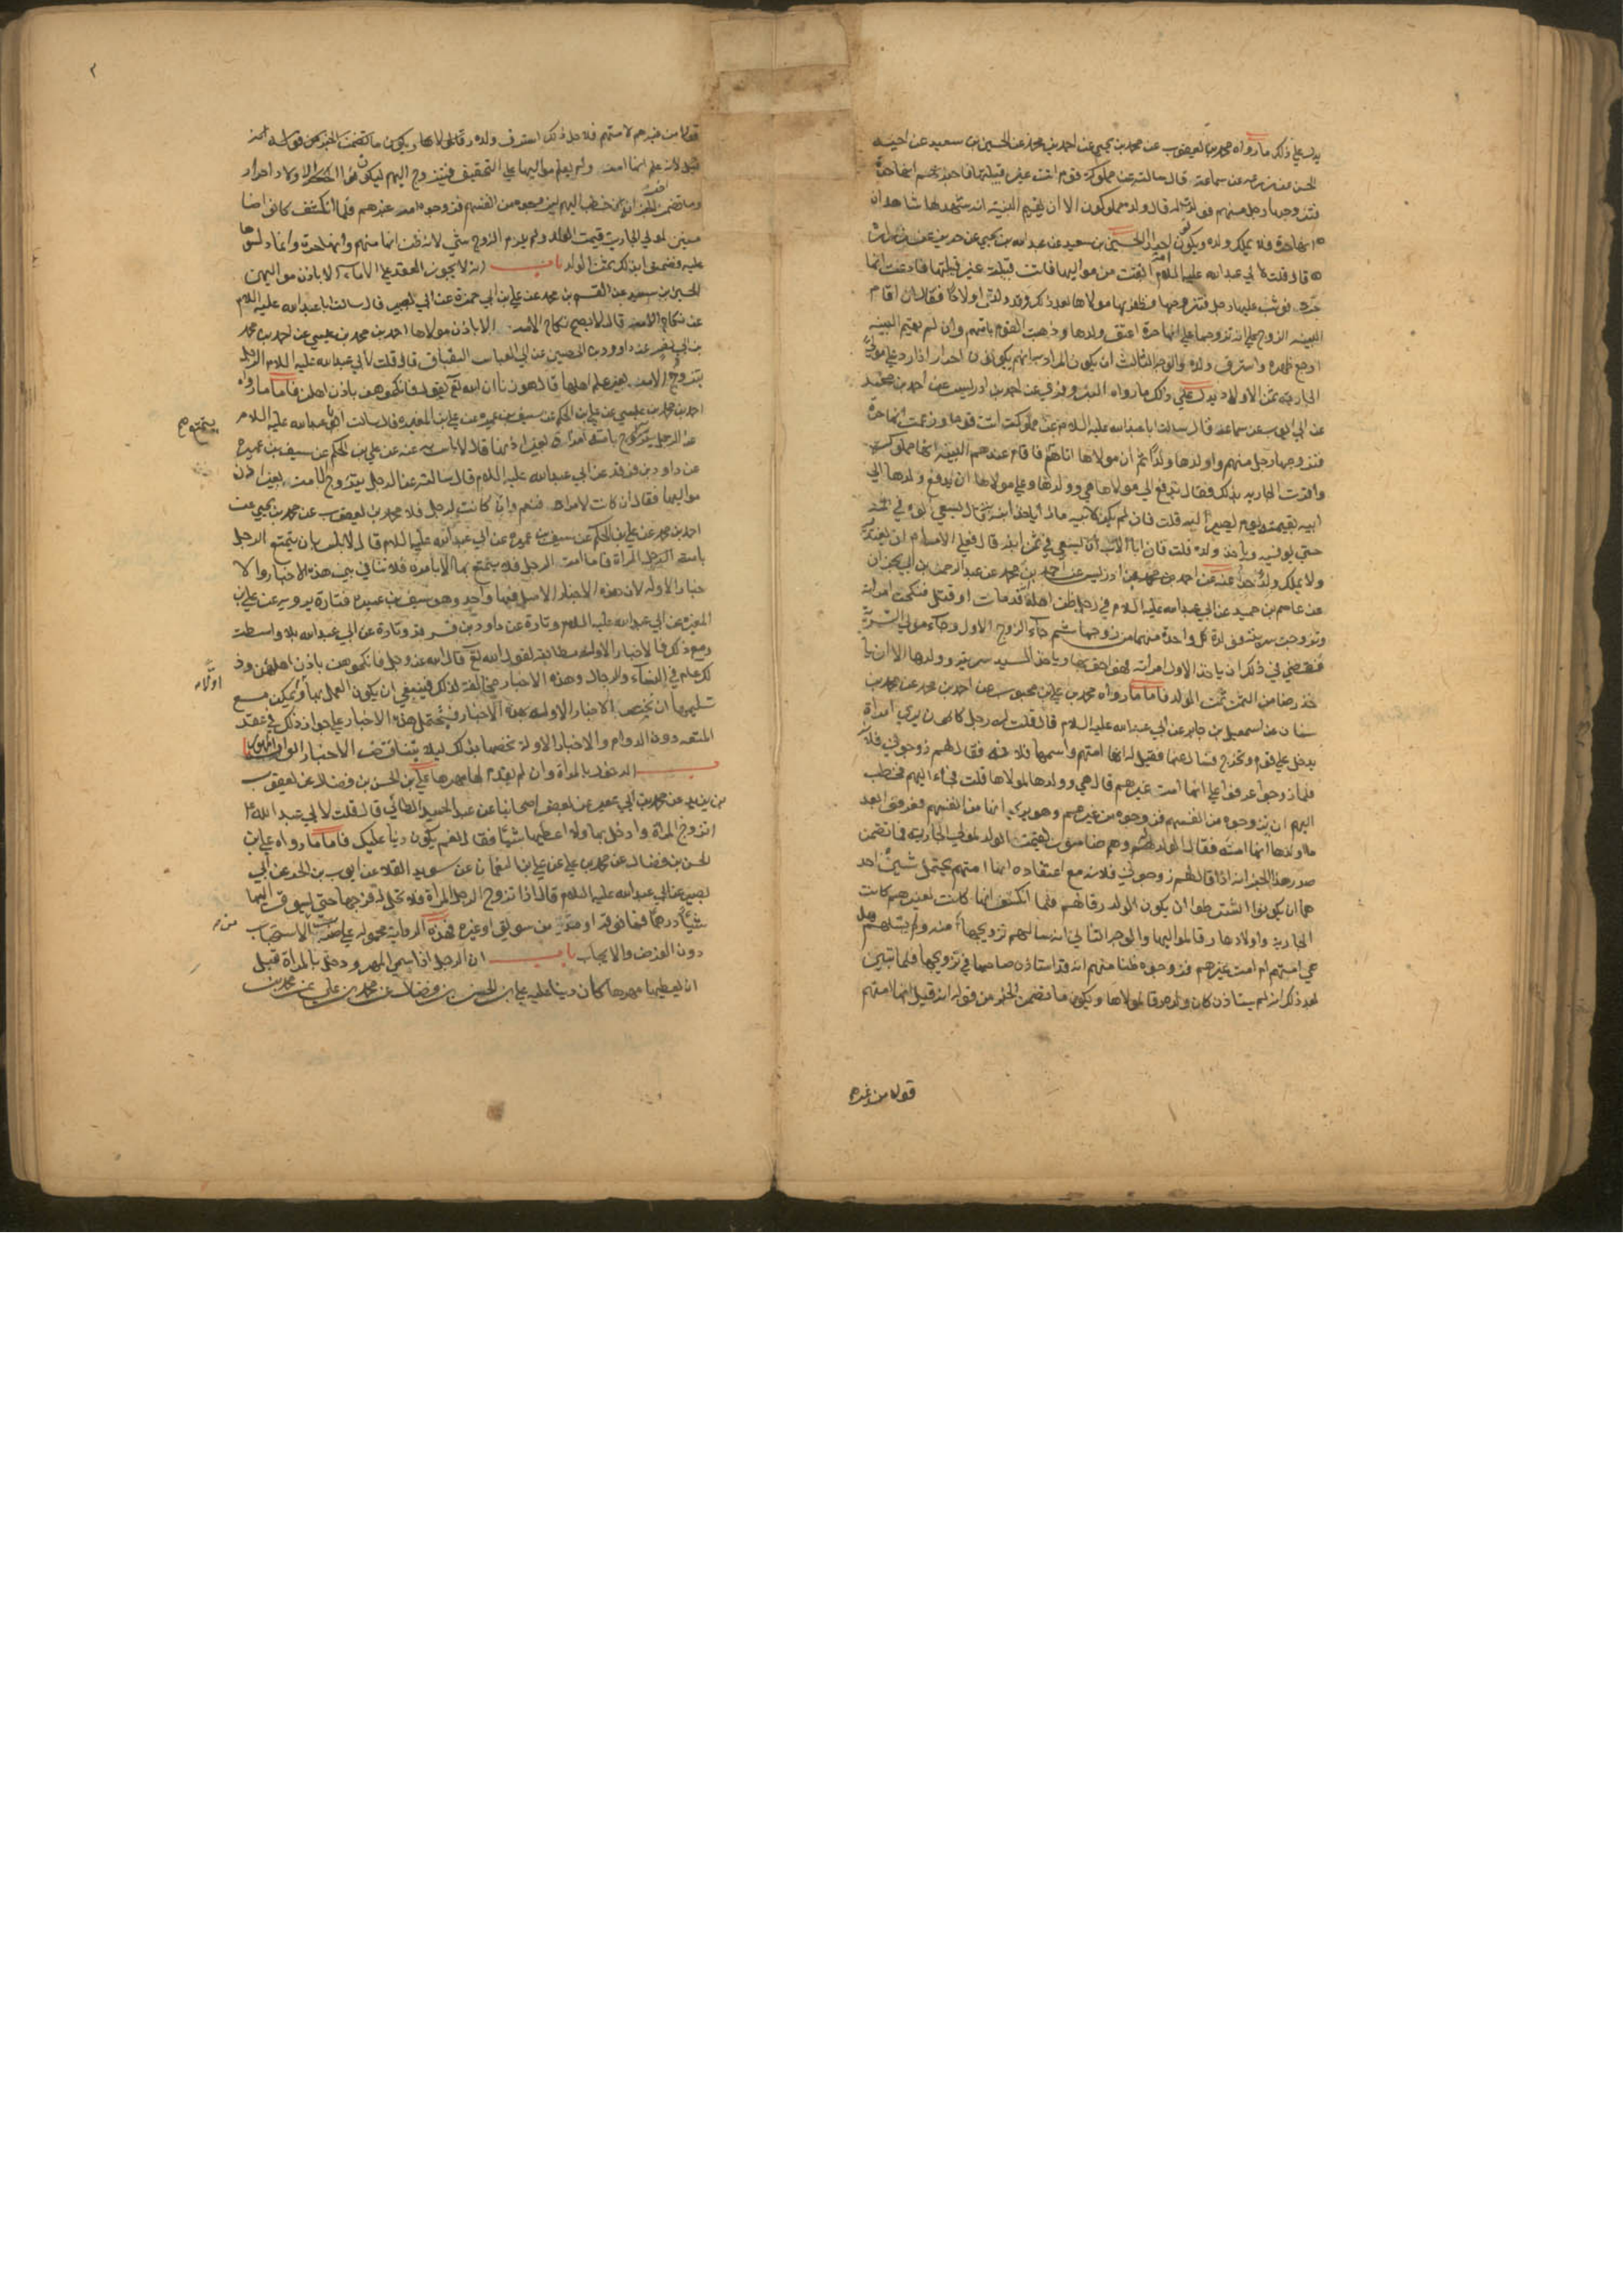 يدل على ذلك ما رواه محمد بن يعقوب عن محمد بن يحيى عن احمد بن محمد عن الحسين بن سعيد عن اخيه
الحسن عن زرعه عن سماعة قال سالته عن مملوكة قوم اتت غير قبيلتها فاخبرتهم انها حرة
فتزوجها رجل منهم فولدت له قال ولده مملوكون الا ان يقيم البينة انه شهد لها شاهدان
انها حرة فلا يملك ولده ويكونون احرارا الحسين بن سعيد عن عبد الله بن يحيى عن حريز عن زرارة
قال قلت لابي عبد الله عليه السلام امة ابقت من مواليها فاتت قبيلة غير قبيلتها فادعت انها
حرة فوثب عليها رجل فتزوجها فظفر بها مولاها بعد ذلك وقد ولدت اولادا فقال ان اقام
البينة الزوج على انه تزوجها على انها حرة اعتق ولدها وذهب القوم بامتهم وان لم يقم البينة
اوجع ظهره واسترق ولده والوجه الثالث ان يكون المراد بانهم يكونون احرارا اذا رد على مولى
الجارية ثمن الاولاد يدل على ذلك ما رواه البزوفري عن احمد بن ادريس عن احمد بن محمد
عن ابي ايوب عن سماعة قال سالت ابا عبد الله عليه السلام عن مملوكة اتت قوما وزعمت انها حرة
فتزوجها رجل منهم واولدها ولدا ثم ان مولاها اتاهم فاقام عندهم البينة انها مملوكة
واقرت الجارية بذلك فقال تدفع الى مولاها هي وولدها وعلى مولاها ان يدفع ولدها الى
ابيه بقيمته يوم يصير اليه قلت فان لم يكن لابيه ما ياخذ ابنه به قال يسعى ابوه في ثمنه
حتى يوفيه وياخذ ولده قلت فان ابا الاب ان يسعى في ثمن ابنه قال فعلى الامام ان يفتديه
ولا يملك ولد حر عنه عن احمد بن ادريس عن احمد بن محمد عن عبد الرحمن بن ابي نجران
عن عاصم بن حميد عن ابي عبد الله عليه السلام في رجل ظن اهله انه قد مات او قتل فنكحت امراته
وتزوجت سريته فولدت كل واحدة منهما من زوجها ثم جاء الزوج الاول وجاء مولى السرية
فقضى في ذلك ان ياخذ الاول امراته فهو احق بها وياخذ السيد سريته وولدها الا ان يا
خذ رضا من الثمن ثمن الولد فاما ما رواه محمد بن علي بن محبوب عن احمد بن محمد عن محمد بن
سنان عن اسمعيل بن جابر عن ابي عبد الله عليه السلام قال قلت له رجل كان يرى امراة
تدخل على قوم وتخرج فسال عنها فقيل له انها امتهم واسمها فلانة فقال لهم زوجوني فلانة
فلما زوجوا عرفوا على انها امة غيرهم قال هي وولدها لمولاها قلت فجاء اليهم فخطب
اليهم ان يزوجوه من انفسهم فزوجوه من غيرهم وهو يرى انها من انفسهم فعرفوا بعد
ما اولدها انها امة فقال الولد لهم وهم ضامنون لقيمة الولد لمولى الجارية فما تضمن
صدر هذا الخبر انه اذا قال لهم زوجوني فلانة مع اعتقاده انها امتهم يحتمل شيئين احد
هما ان يكونوا اشترطوا ان يكون الولد رقا لهم فلما انكشف انها كانت لغيرهم كانت
الجارية واولادها رقا لمواليها والوجه الثاني انه سالهم تزويجها منه ولم يسئلهم هل
هي امتهم ام امة غيرهم فزوجوه ظنا منهم انه قد استاذن صاحبها في تزويجها فلما تبين
بعد ذلك انه لم يستاذن كان ولده رقا لمولاها ويكون ما تضمن الخبر من قوله انه قيل انها امتهم
قولا من غيره
٢
قولا من غيرهم لا منهم فلاجل ذلك استرق ولده رقا لمولاها ويكون ما تضمن الخبر من قوله انه
قيل لانه علم انها امة ولم يعلم مواليها على التحقيق فيتزوج اليهم ليكونوا الاولاد احرار
وما تضمن الخبر انه خطب اليهم ليزوجوه من انفسهم فزوجوه امة غيرهم فلما انكشف كانوا ضا
منين لمولى الجارية قيمة الولد ولم يلزم الزوج شي لانه ظن انها منهم وانها حرة وانما دلسوها
عليه فضمنوا بذلك ثمن الولد باب انه لا يجوز العقد على الاماء الا باذن مواليهن
الحسين بن سعيد عن القسم بن محمد عن علي بن ابي حمزة عن ابي بصير قال سالت ابا عبد الله عليه السلام
عن نكاح الامة قال لا يصح نكاح الامة الا باذن مولاها احمد بن محمد بن عيسى عن احمد بن محمد
بن ابي نصر عن داوود بن الحصين عن ابي العباس البقباق قال قلت لابي عبد الله عليه السلام الرجل
يتزوج الامة بغير علم اهلها قال هو زنا ان الله تع يقول فانكحوهن باذن اهلهن فاما ما رواه
احمد بن محمد بن عيسى عن علي بن الحكم عن سيف بن عميرة عن علي بن المغيرة قال سالت ابا عبد الله عليه السلام
يتمتع ح
عن الرجل يتزوج بامة امراة بغير اذنها قال لا باس به عنه عن علي بن الحكم عن سيف بن عميرة
عن داود بن فرقد عن ابي عبد الله عليه السلام قال سالته عن الرجل يتزوج بالامة بغير اذن
مواليها فقال ان كانت لامراة فنعم وان كانت لرجل فلا محمد بن يعقوب عن محمد بن يحيى عن
احمد بن محمد عن علي بن الحكم عن سيف بن عميرة عن ابي عبد الله عليه السلام قال لا باس بان يتمتع الرجل
بامة المراة فاما امة الرجل فلا يتمتع بها الا بامره فلا تنافي بين هذه الاخبار والا
خبار الاوله لان هذه الاخبار الاصل فيها واحد وهو سيف بن عميرة فتارة يرويه عن علي بن
المغيرة عن ابي عبد الله عليه السلام وتارة عن داود بن فرقد وتارة عن ابي عبد الله بلا واسطة
ومع ذلك فالاخبار الاوله مطابقة لقول الله تع قال الله عز وجل فانكحوهن باذن اهلهن وذ
لك عام في النساء والرجال وهذه الاخبار مخالفة لذلك فينبغي ان يكون العمل بها اولى ويمكن مع
تسليمها ان نخص الاخبار الاوله بهذه الاخبار فنحتمل هذه الاخبار على جواز ذلك في عقد
المتعة دون الدوام والاخبار الاوله نخصها بذلك لئلا يتناقض الاخبار
باب الدخول بالمراة وان لم يقدم لها مهرها علي بن الحسن بن فضال عن يعقوب
بن يزيد عن محمد بن ابي عمير عن بعض اصحابنا عن عبد الحميد الطائي قال قلت لابي عبد الله ع
اتزوج المراة وادخل بها ولا اعطيها شيئا فقال نعم يكون دينا عليك فاما ما رواه علي بن
الحسن بن فضال عن محمد بن علي عن علي بن النعمان عن سويد القلا عن ايوب بن الحر عن ابي
بصير عن ابي عبد الله عليه السلام قال اذا تزوج الرجل المراة فلا تحل له فرجها حتى يسوق اليها
شيئا درهما فما فوقه او هدية من سويق او غيره فهذه الرواية محمولة على ضرب من الاستحباب
دون الفرض والايجاب باب ان الرجل اذا سمى المهر ودخل بالمراة قبل
ان يعطيها مهرها كان دينا عليه علي بن الحسن بن فضال عن محمد بن علي عن محمد بن